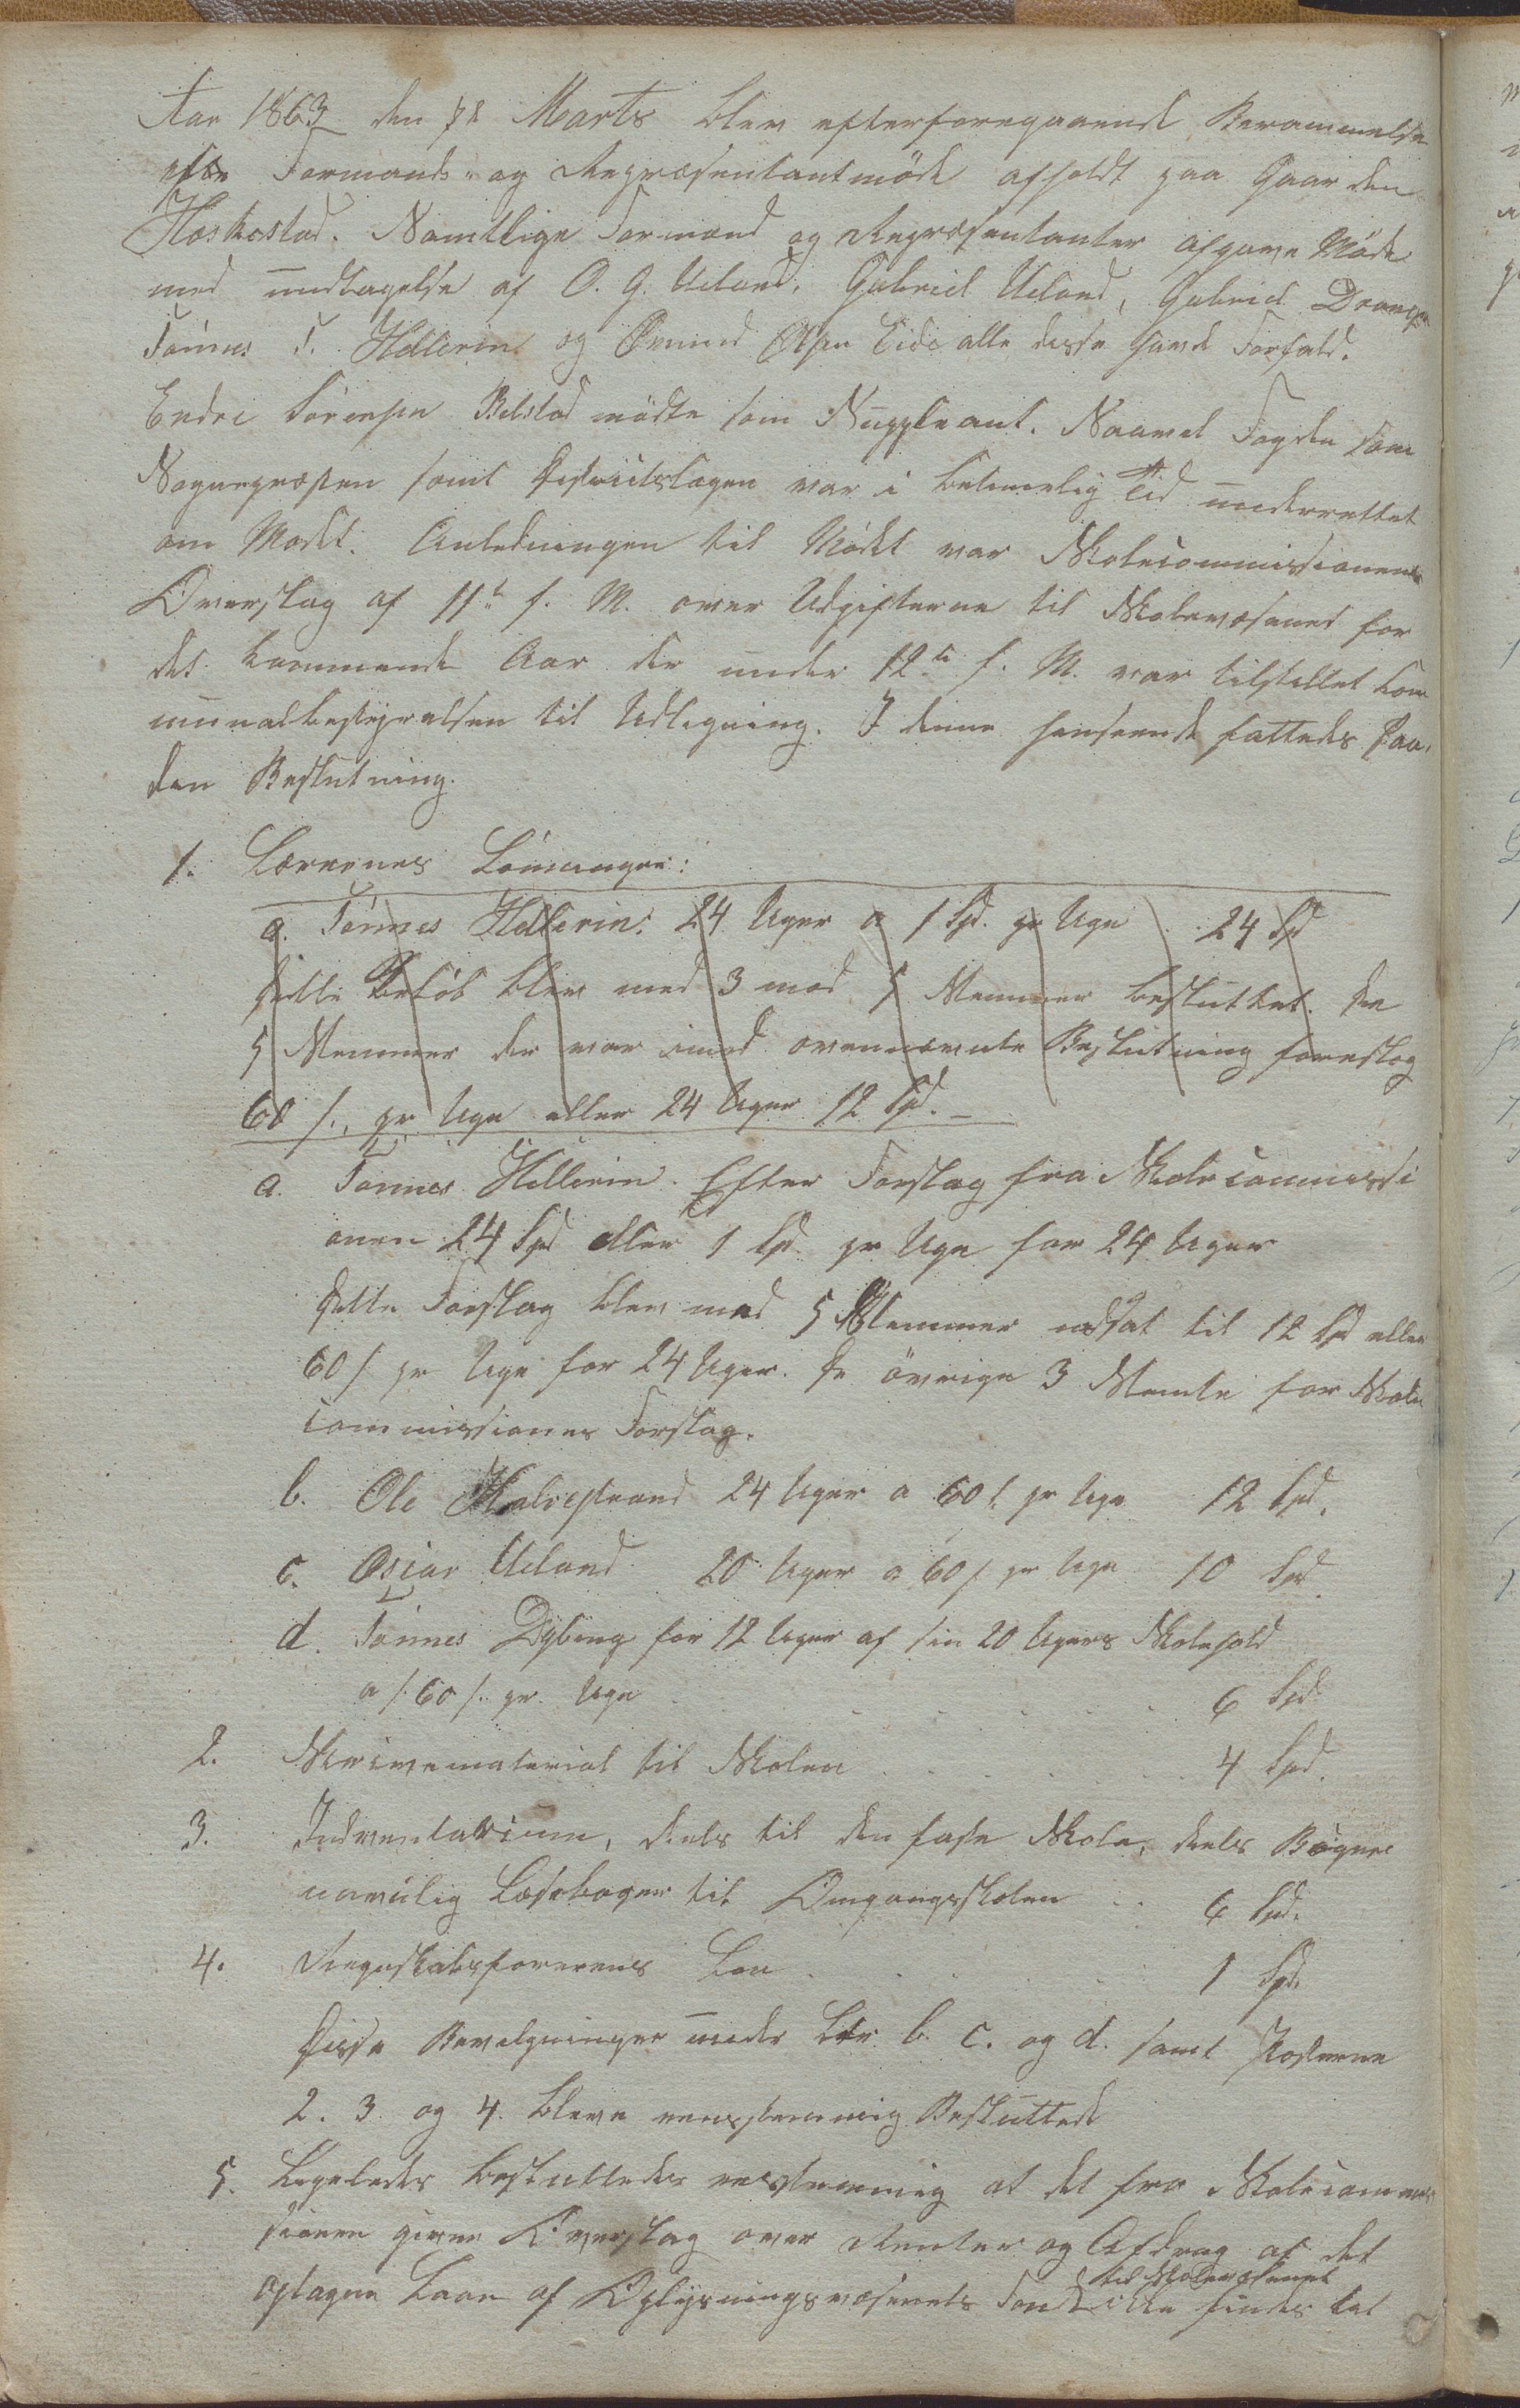 Aar 1863 den 7de Marts blev efterforegaaende Berammelse
Formands- og Repræsentantmöde afholdt paa Gaarden
Heskestad. Samtlige Formænd og Repræsentanter afgave Möde
med undtagelse af O. G. Ueland, Gabriel Ueland, Gabriel
Tönnes T. Hellerin og Ömund Olsen Eide alle disse havde Forfald.
Endre Sörensen Bilstad mödte som Suppleant. Saavel Fogden som
Sognepræsten samt Districtslægen var i betimelig Tid underrettet
om Mödet. Anledningen til Mödet var Skolecommissionens
Overslag af 11te f. M. over Udgifterne til Skolevæsenet for
det kommende Aar der under 12te f. M. var tilstillet Com
munalbestyrelsen til Udligning. I denne henseende fattedes saa-
dan Beslutning.
1. Lærernes Lönninger:
a. Tönnes Hellerin: 24 Uger a 1 Spd. pr Uge . . 24 Spd
Dette Belöb blev med 3 mod 5 Stemmer besluttet. De
5 Stemmer der var imod ovennævnte Beslutning foreslog
60 s. pr Uge eller 24 Uger 12 Spd. —
a. Tönnes Hellerin. Efter Forslag fra Skolecommissi
onen 24 Spd eller 1 Spd pr Uge for 24 Uger
Dette Forslag blev med 5 Stemmer nedsat til 12 Spd eller
60 s pr Uge for 24 Uger. De övrige 3 Stemte for Skole
commissiones Forslag.
b. Ole Skalvestrand 24 Uger a 60 s. pr Uge 12 Spd.
c. Osiar Ueland 20 Uger a 60 s pr Uge 10 Spd
d. Tönnes Dybing for 12 Uger af sin 20 Ugers Skolehold
a 60 s. pr. Uge . . . . . . 6 Spd
2. Skrivematerial til Skolen . . . . . . 4 Spd.
3. Indventarium, deels til den faste Skole, deels Böger
navnlig Læseboger til Omgangsskolen . . 6 Spd.
4. Regnskabsförerens Lön . . . . . 1 Spd.
Disse Bevilgninger under Ltr b. c. og d. samt Posterne
2. 3. og 4. bleve eenstemmig Besluttede
5. Ligeledes besluttedes eenstemmig at det fra Skolecommis
sionen givne Overslag over Renter og Afdrag af det
til Skolevæsenet
optagne Laan af Oplysningsvæsenets Fond ikke findes tal